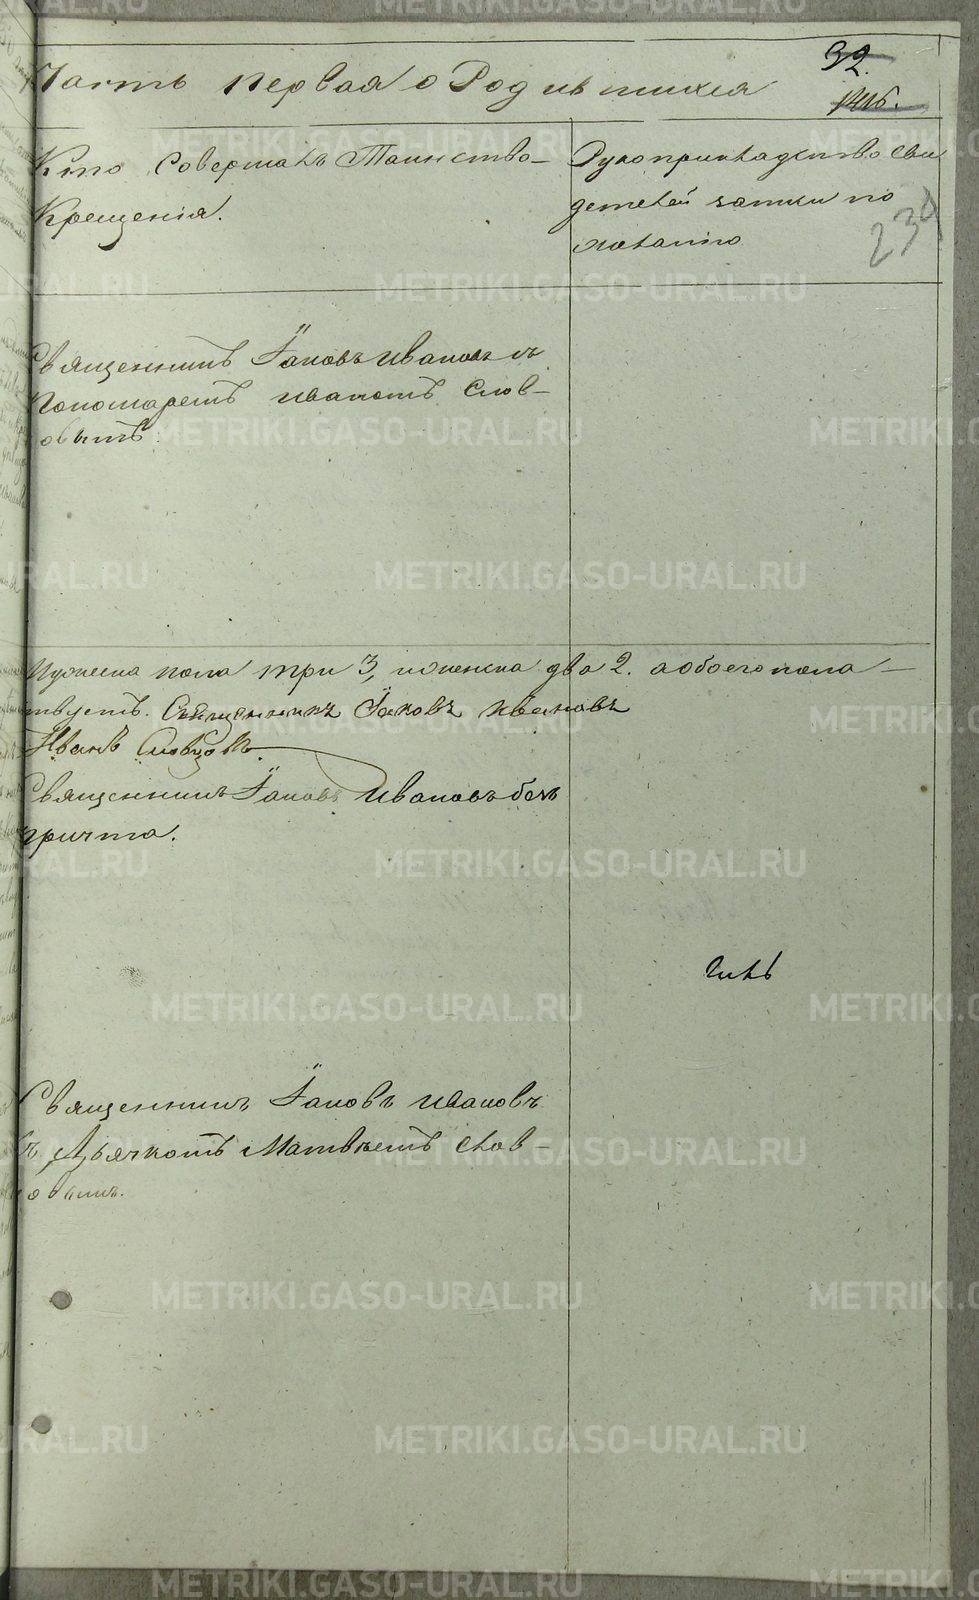 Часть первая о Родившихся
32.
Кто Совершалъ Таинство
Крещенія.
Рукоприкладство сви
детелей записи по
желанію
239
Священникъ Іаковъ Ивановъ съ
Пономаремъ Иваномъ Слов-
овымъ
Мужеска пола три 3, и женска два 2. а обоего пола
Священникъ Іаковъ Ивановъ
Иванъ Словцовъ.
Священникъ Іаковъ Ивановъ безъ
причта.
Священникъ Іаковъ Ивановъ
съ Дьячкомъ Матвѣемъ Слов-
овымъ.
METRIKI.GASO-URAL.RU